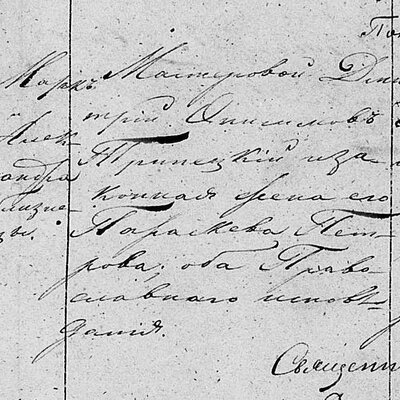 По
Маркъ
Алек
сандра
близне
цы.
Мастеровой Дми
трій Онисимовъ
Трипецкій и за
конная жена его
Параскева Пет
рова; оба Право
славнаго исповѣ
данія.
Священн